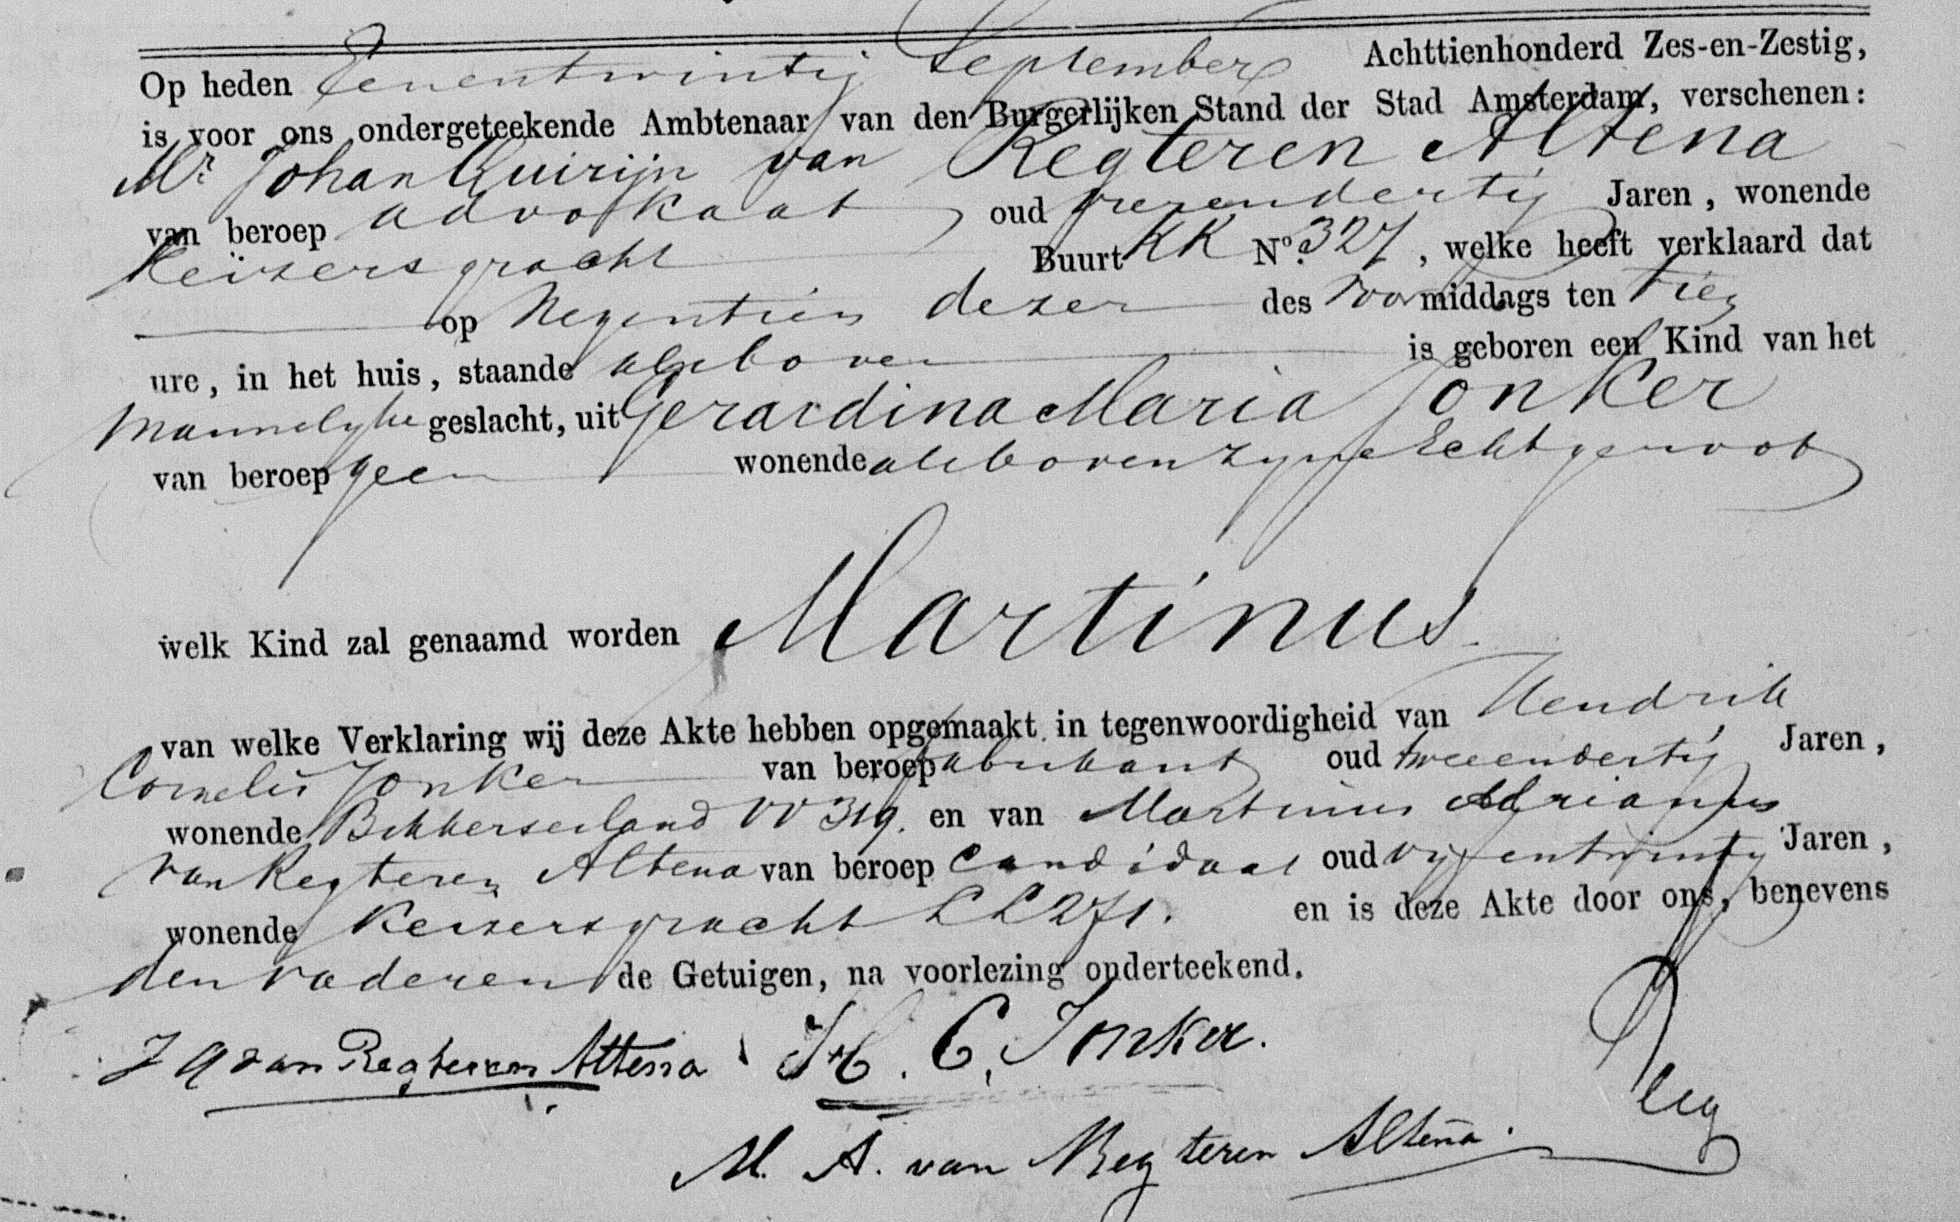 Op heden Eenentwintig September Achttienhonderd Zes-en-Zestig,
is voor ons ondergeteekende Ambtenaar van den Burgerlijken Stand der Stad Amsterdam, verschenen:
Mr. Johan Quirijn van Regteren Altena
van beroep advokaat oud vierendertig Jaren, wonende
Keizersgracht Buurt KK No. 327, welke heeft verklaard dat
op Negentien dezer des voormiddags ten tien
ure, in het huis, staande alsboven is geboren een Kind van het
Mannelyke geslacht, uit Gerardina Maria Jonker
van beroep geen wonende alsboven zyne Echtgenoot
welk Kind zal genaamd worden Martinus
van welke Verklaring wij deze Akte hebben opgemaakt in tegenwoordigheid van Hendrik
Cornelis Jonker van beroep fabrikant oud tweeendertig Jaren,
wonende Bikkerseiland VV 319. en van Martinus Adrianus
van Regteren Altena van beroep Candidaat oud vyfentwintig Jaren,
wonende Keizersgracht LL 271. en is deze Akte door ons, benevens
den vader en de Getuigen, na voorlezing onderteekend.
J Q van Regteren Altena H. C. Jonker.
M. A. van Regteren Altena.